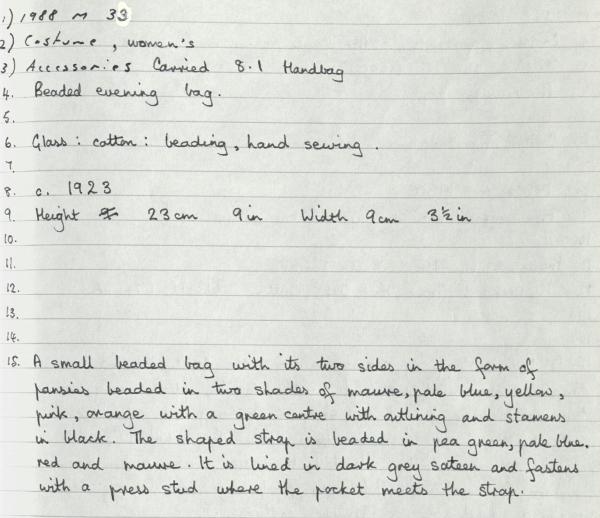 1) 1988 M 33
2) Costume, women's
3) Accessories Carried 8.1 Handbag
4. Beaded evening bag.
5.
6. Glass: cotton: beading, hand sewing.
7.
8. c. 1923
9. Height 23cm 9in Width 9cm 3½in
10.
11.
12.
13.
14.
15. A small beaded bag with its two sides in the form of
pansies beaded in two shades of mauve, pale blue, yellow,
pink, orange with a green centre with outlining and stamens
in black. The shaped strap is beaded in pea green, pale blue.
red and mauve. It is lined in dark grey sateen and fastens
with a press stud where the pocket meets the strap.